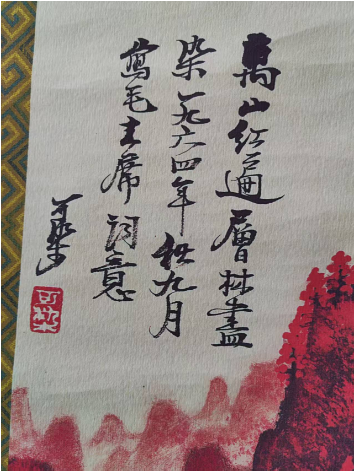 萬山紅遍層林盡
染一九六四年秋九月
寫毛主席詞意
可染
可染